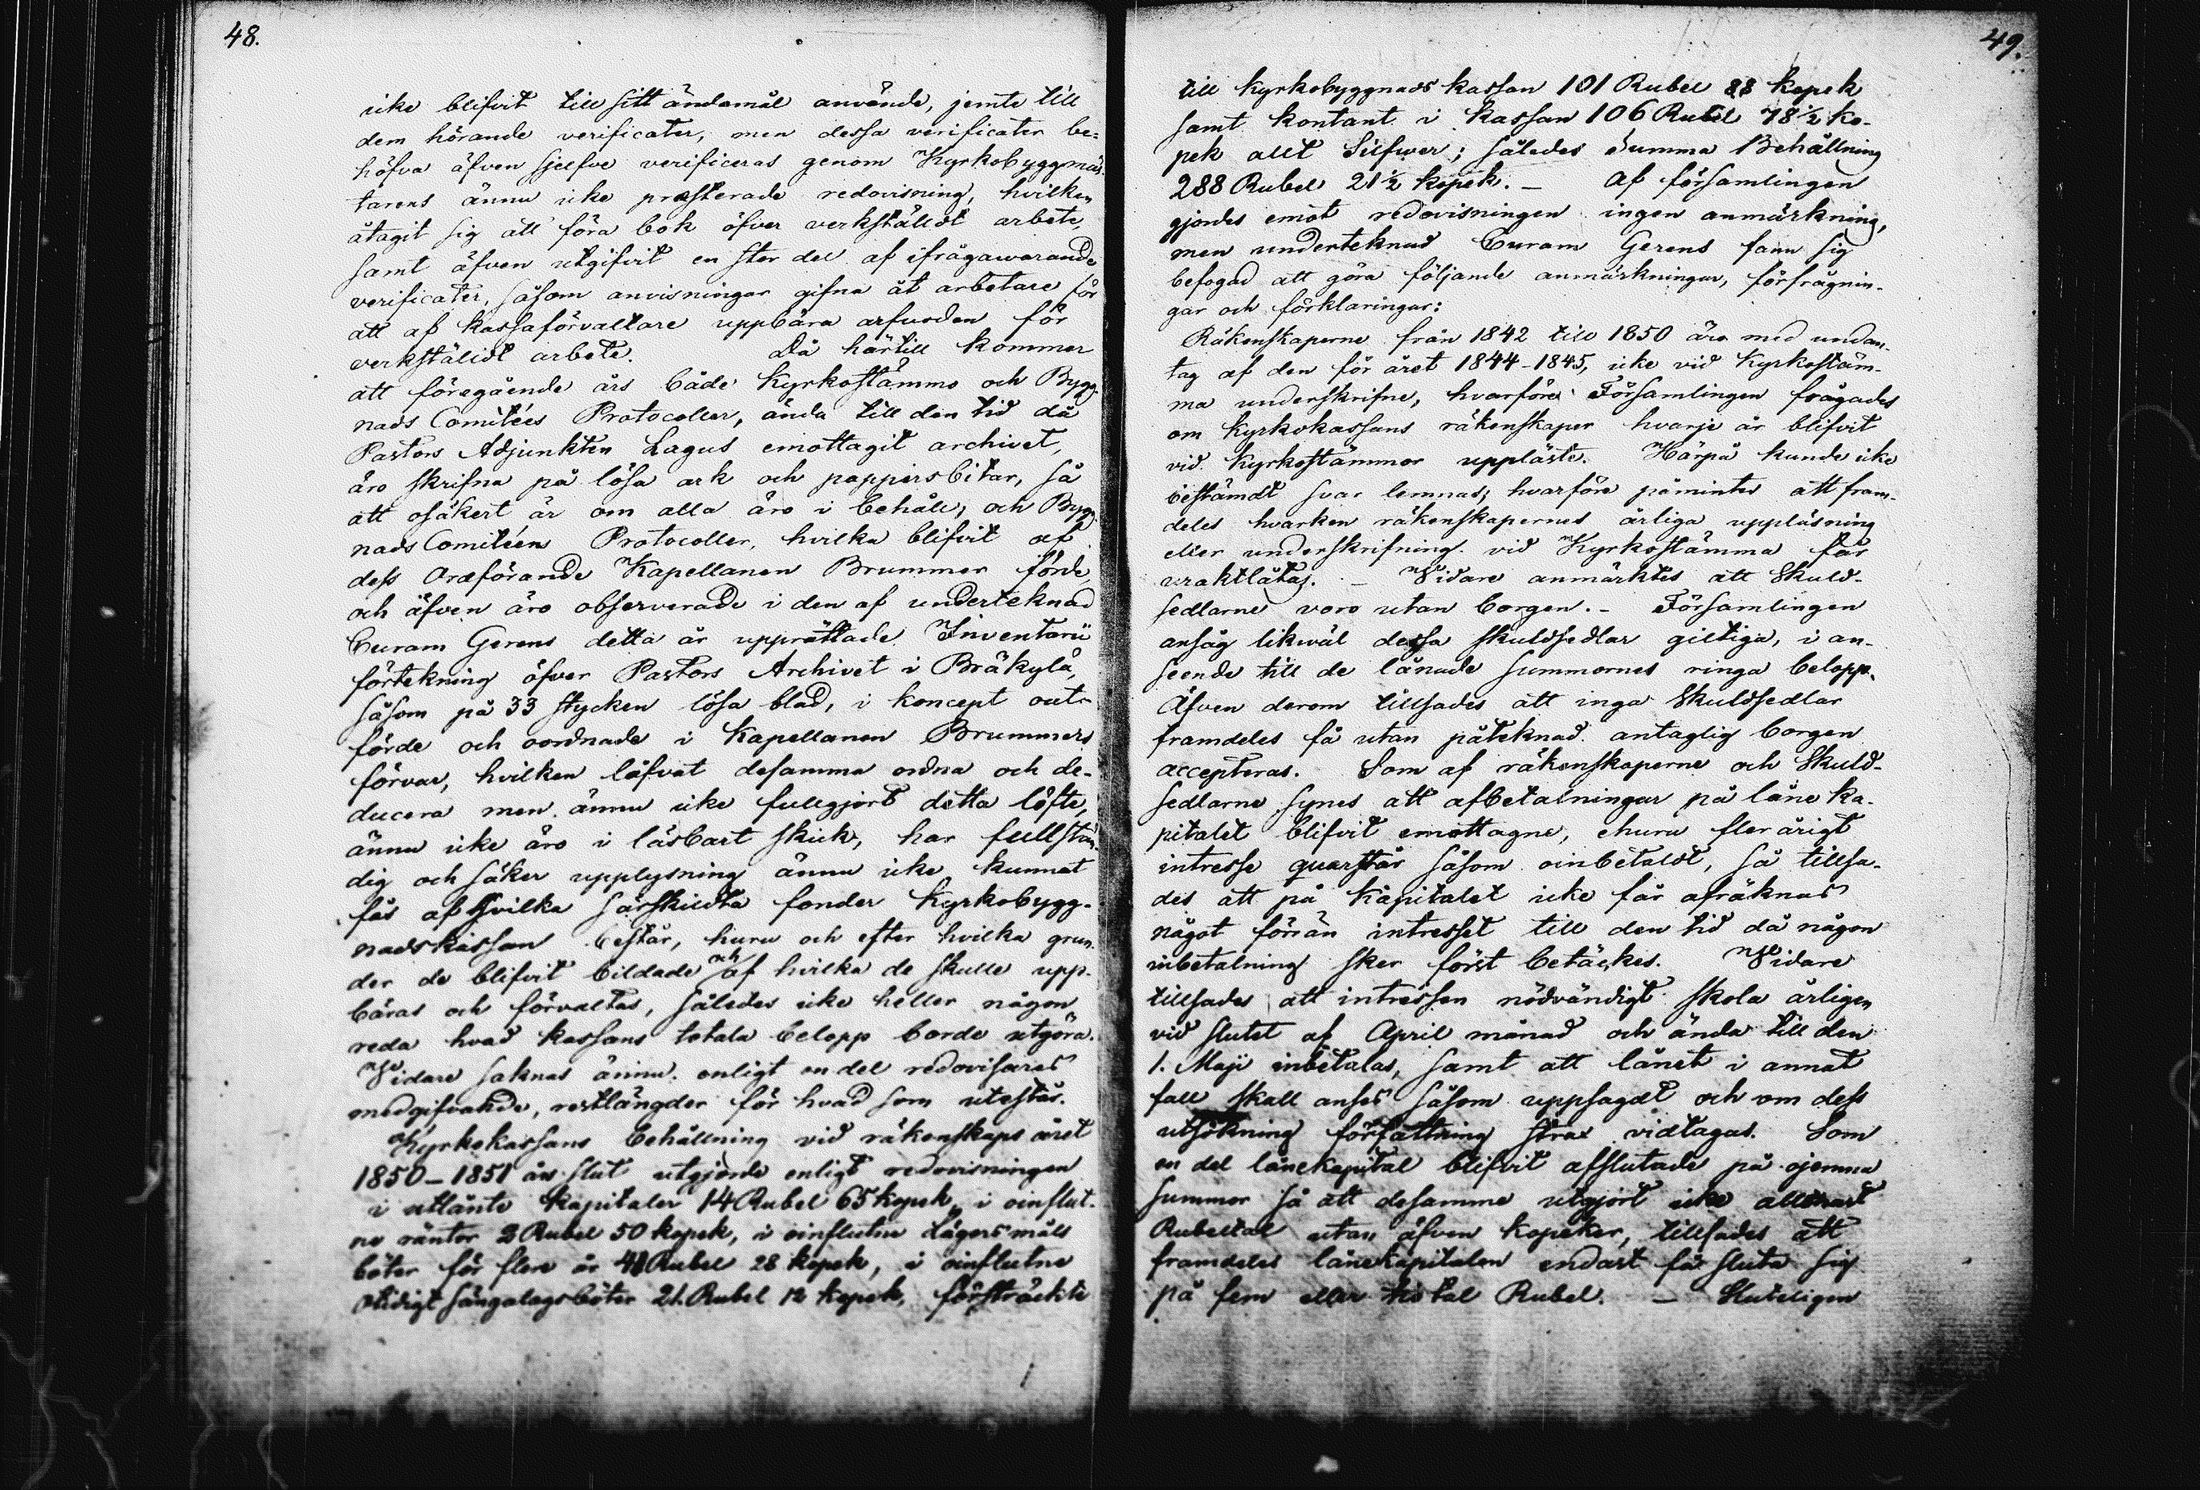 48.
icke blifvit till sitt ändamål använde, jemte till
dem hörande verificater, men dessa verificater be-
höfva äfven sjelfve verificeras genom Kyrkobyggmäs-
tarens ännu icke præsterade redovisning, hvilken
åtagit sig att föra bok öfver verkställdt arbete,
samt äfven utgifvit en stor del af ifrågawarande
verificater, såsom anvisningar gifna åt arbetare för
att af kassaförvaltare uppbära arfvoden för
verkställdt arbete. Då härtill kommer
att föregående års både Kyrkostämmo och Bygg-
nads Comitées Protocoller, ända till den tid då
Pastors Adjunkten Lagus emottagit archivet,
äro skrifna på lösa ark och pappersbitar, så
att osäkert är om alla äro i behåll; och Bygg-
nads Comitéens Protocoller, hvilka blifvit af
dess Ordförande Kapellanen Brummer förde,
och äfven äro observerade i den af undertecknad
Curam Gerens detta år upprättade Inventarii
förtekning öfver Pastors Archivet i Bräkylä,
såsom på 33 stycken lösa blad, i koncept outr-
förde och oordnade i Kapellanen Brummers
förvar, hvilken låfvat desamma ordna och de-
ducera men ännu icke fullgjort detta löfte,
ännu icke äro i läsbart skick, har fullstän-
dig och säker upplysning ännu icke kunnat
fås af hvilka särskildta fonder Kyrkobygg-
nadskassan består, huru och efter hvilka grun-
der de blifvit bildade och af hvilka de skulle upp-
bäras och förvaltas, således icke heller någon
reda hvad kassans totala belopp borde utgöra.
Vidare saknas ännu, enligt en del redovisares
medgifvande, restlängder för hvad som utestår.
Kyrkokassans behållning vid räkenskaps året
1850–1851 års slut utgjorde enligt redovisningen
i utlånte kapitaler 14 Rubel 65 kopek, i oinflut-
ne räntor 2 Rubel 50 kopek, i oinflutne lägersmåls
böter för flere år 41 Rubel 28 kopek, i oinflutne
otidigt sängalagsböter 21. Rubel 12 kopek, försträckte
49.
till Kyrkobyggnads kassan 101 Rubel 88 kopek
samt kontant i kassan 106 Rubel 78 ½ ko-
pek allt Silfwer; således Summa Behållning
288 Rubel 21 ½ kopek. – Af församlingen
gjordes emot redovisningen ingen anmärkning,
men underteknad Curam Gerens fann sig
befogad att göra följande anmärkningar, förfrågnin-
gar och förklaringar:
Räkenskaperne från 1842 till 1850 äro med undan-
tag af den för året 1844–1845, icke vid Kyrkostäm-
ma underskrifne, hvarföre Församlingen frågades
om Kyrkokassans räkenskaper hvarje år blifvit
vid Kyrkostämmor uppläste. Härpå kunde icke
bestämdt svar lemnas; hvarföre påmintes att fram-
deles hvarken räkenskapernes årliga uppläsning
eller underskrifning vid Kyrkostämma får
uraktlåtas. – Vidare anmärktes att Skuld-
sedlarne voro utan borgen. – Församlingen
ansåg likwäl dessa skuldsedlar giltiga, i an-
seende till de lånade summornes ringa belopp.
Äfven derom tillsades att inga Skuldsedlar
framdeles få utan påteknad antaglig borgen
accepteras. Som af räkenskaperne och Skuld-
sedlarne synes att afbetalningar på låne ka-
pitalet blifvit emottagne, ehuru flerårigt
intresse quarstår såsom oinbetaldt, så tillsa-
des att på Kapitalet icke får afräknas
något förrän intresset till den tid då någon
inbetalning sker först betäckes. Vidare
tillsades att intressen nödvändigt skola årligen
vid slutet af April månad och ända till den
1. Maji inbetalas, samt att lånet i annat
fall skall anses såsom uppsagdt och om dess
utsökning författning strax vidtagas. Som
en del lånekapital blifvit afslutade på ojemna
summor så att desamme utgjort icke allenast
Rubeltal utan äfven kopeker, tillsades att
framdeles lånekapitalen endast få sluta sig
på fem eller tiotal Rubel. – Sluteligen